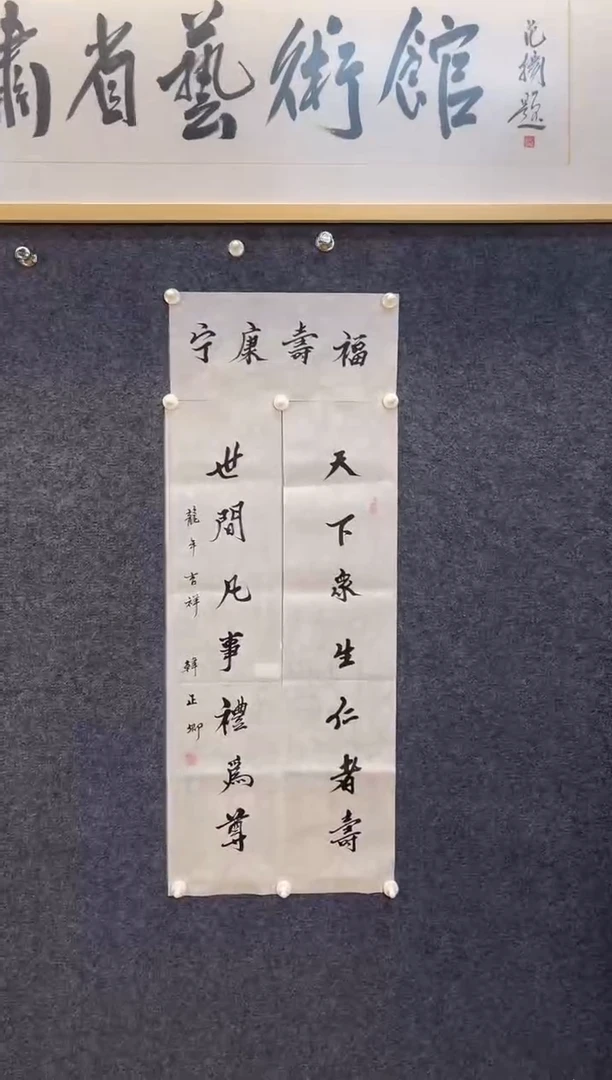 肅省藝術館
范㧑題
福壽康宁
天下衆生仁者壽
世間凡事禮為尊
龍年吉祥 韓正卿